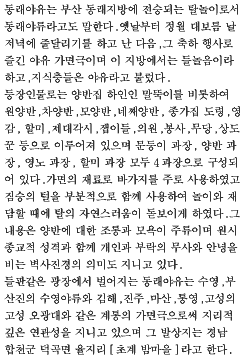 동래야유는 부산 동래지방에 전승되는 탈놀이로서
동래야류라고도 말한다.옛날부터 정월 대보름 날
저녁에 줄달리기를 하고 난 다음,그 축하 행사로
즐긴 야유 가면극이며 이 지방에서는 들놀음이라
하고,지식층들은 야유라고 불렀다.
등장인물로는 양반집 하인인 말뚝이를 비롯하여
원양반,차양반,모양반,네째양반, 종가집 도령,영
감,할미,제대각시,잽이들,의원,봉사,무당,상도
꾼 등으로 이루어져 있으며 문둥이 과장,양반 과
장, 영노 과장, 할미 과장 모두 4과장으로 구성되
어 있다.가면의 재료로 바가지를 주로 사용하였고
짐승의 털을 부분적으로 함께 사용하여 놀이와 재
담할 때에 탈의 자연스러움이 돋보이게 하였다.그
내용은 양반에 대한 조롱과 모욕이 주류이며 원시
종교적 성격과 함께 개인과 부락의 무사와 안녕을
비는 벽사진경의 의미도 지니고 있다.
들판같은 광장에서 벌어지는 동래야유는 수영,부
산진의 수영야류와 김해,진주,마산,통영,고성의
고성 오광대와 같은 계통의 가면극으로써 지리적
깊은 연관성을 지니고 있으며 그 발상지는 경남
합천군 덕곡면 율지리[초계 밤마을]라고 한다.